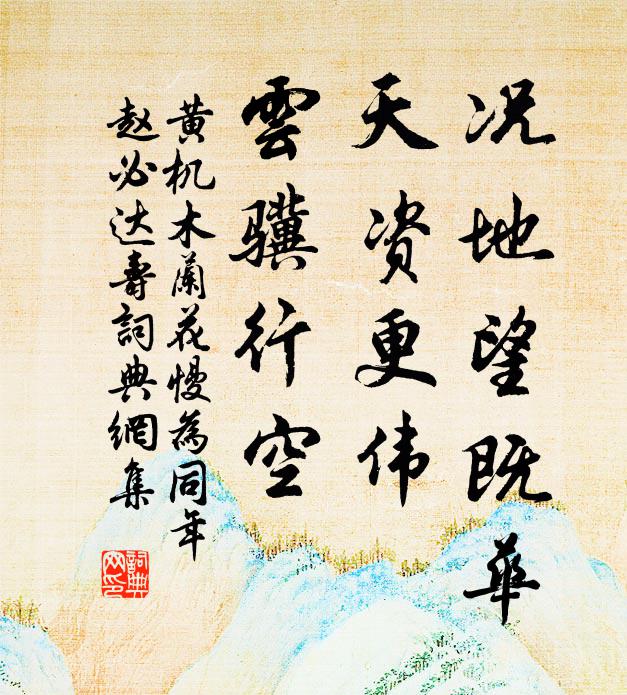 况地望既華
天资更伟
雲骥行空
黄机木蘭花慢為同年
赵必达壽詞典網集
詞典網印